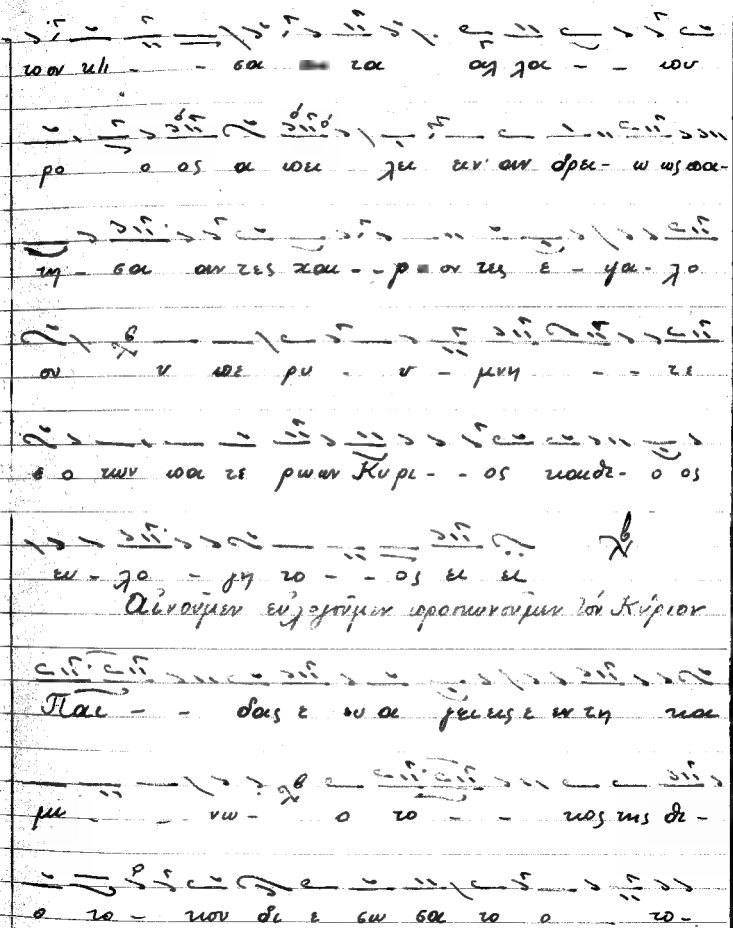 τοον κτι - - σα τα αλ λα - - που
ρο ο ος α πει λει ειν αν δρει - ω ως πα-
τη - σα αν τες χαι - - ρ ον τες ε - ψα - λο
ον υ πε ρυ - υ - μνη - - τε
ε ο των πα τε ρωων Κυρι - - ος και θε - ο ος
ευ - λο - γη το - - ος ει ει
Αἰνοῦμεν εὐλογοῦμεν προσκυνοῦμεν τόν Κύριον
Παι - - δας ε ευ α γει εις ε εν τη κα
μι - - νω - ο το - - κος της θε -
ο το - κου δι ε σω σα το ο - το -